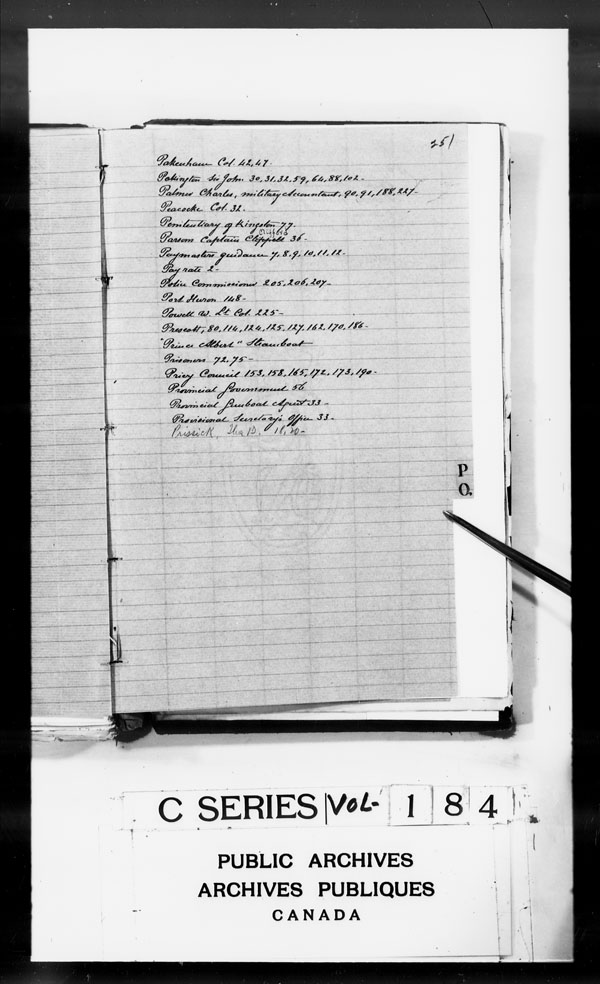 251
Pakenham Col. 42,47.
Pakington Sir John 30,31,32,59,64,88,102-
Palmer Charles, military Accountant, 90,91,188,227-
Peacocke Col. 32.
Penitentiary of Kingston 77-
Parsons Captain 36-
Paymasters guidance 7.8.9.10.11.12-
Pay rate 2-
Police Commissioner 205,206,207-
Port Huron 148-
Powell W. Lt Col. 225-
Prescott, 80,114,124,125,127,162,170,186-
"Prince Albert" Steamboat
Prisoners 72,75-
Privy Council 153,158,165,172,173,190-
Provincial Government 56
Provincial Gunboat Agent 33-
Provisional Secretary's Office 33-
Prissick,
P
O.
C SERIES VOL- 184
PUBLIC ARCHIVES
ARCHIVES PUBLIQUES
CANADA